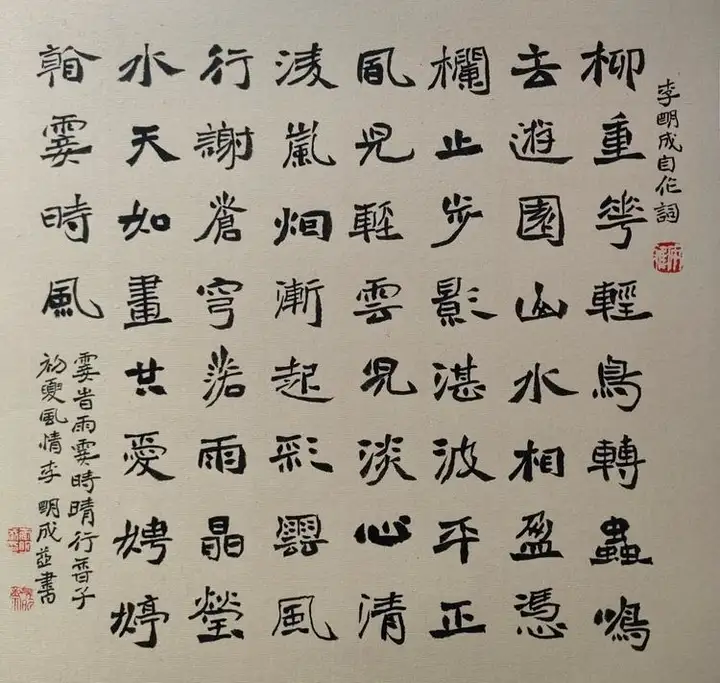 李明成自作詞
柳重華輕鳥轉蟲鳴
去遊園山水相盈憑
欄止步影湛波平正
風兒輕雲兒淡心清
淩嵐烟漸起彩雲風
行謝蒼穹落雨晶瑩
水天如畫共愛娉婷
霎時風
霎旹雨霎時晴行香子
初夏風情李明成並書